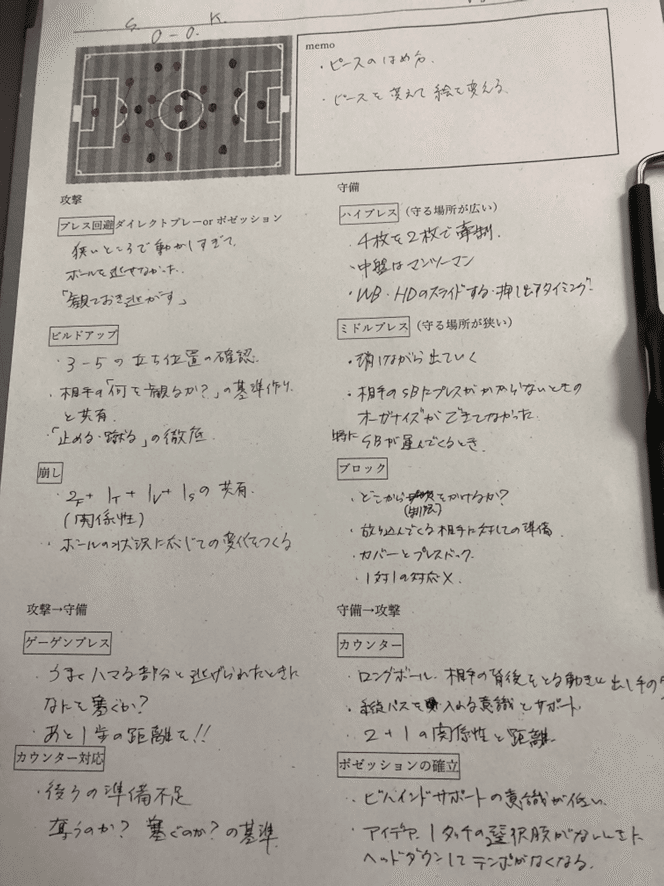 S. K.
0-0.
memo
・ピースのはめ方.
・ピースを変えて絵を変える.
攻撃
プレス回避 ダイレクトプレーor ポゼッション
狭いところで動かしすぎて、
ボールを逃せなかった.
「観ておき逃がす」
ビルドアップ
・3-5の立ち位置の確認.
・相手の「何を観るか?」の基準作り
と共有.
・「止める・蹴る」の徹底
崩し
・2F+1T+1V+1Sの共有.
(関係性)
・ボールの状況に応じての変化をつくる
守備
ハイプレス (守る場所が広い)
・4枚を2枚で牽制.
・中盤はマンツーマン
・WB・HDのスライドする・押し出すタイミング?
ミドルプレス (守る場所が狭い)
・構けながら出ていく
・相手のSBにプレスがかからないときの
オーガナイズができてなかった.
特に SBが運んでくるとき.
ブロック
・どこから をかけるか?
(制限)
・放り込んでくる相手に対しての準備.
・カバーとプレスバック.
・1対1の対応×.
攻撃→守備
ゲーゲンプレス
・うまくハマる部分と逃げられたときに
なにを塞ぐか?
・あと1歩の距離を!!
カウンター対応
・後ろの準備不足
奪うのか?塞ぐのか?の基準.
守備→攻撃
カウンター
・ロングボール. 相手の背後をとる動きと出し手の
・縦パスを入れる意識とサポート.
・2+1の関係性と距離.
ポゼッションの確立
・ビハインドサポートの意識が低い.
・アイデア. 1タッチの選択肢がないときに
ヘッドダウンしてテンポがなくなる.